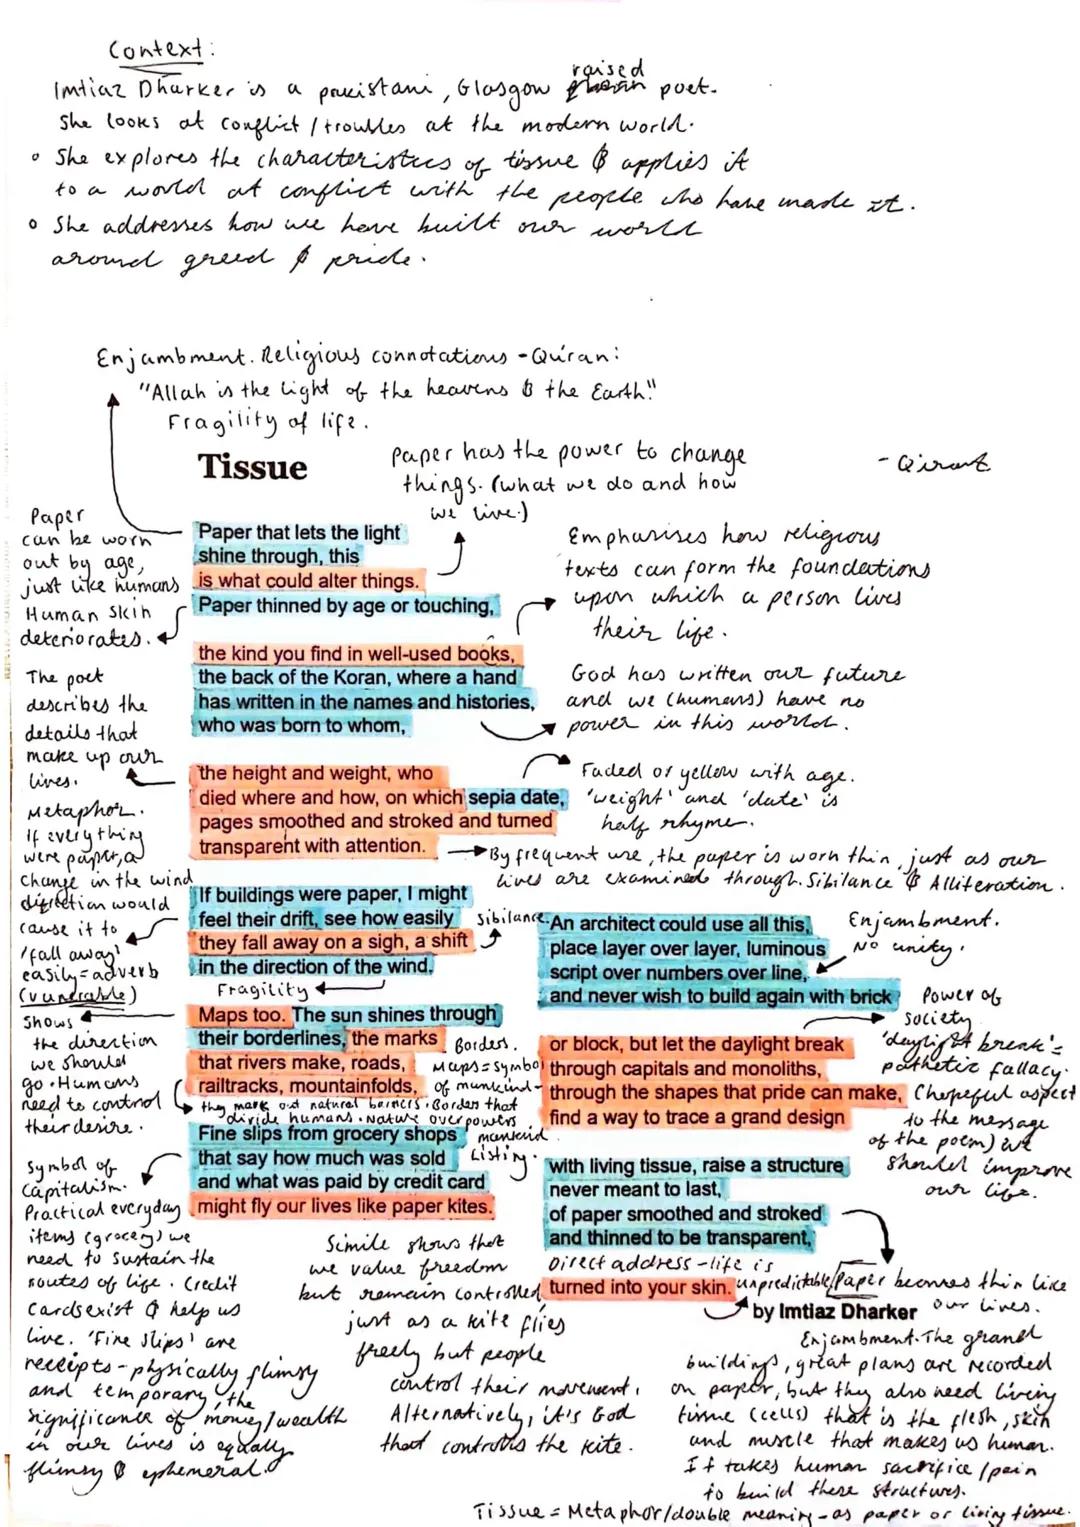 Context:
Imtiaz Dharker is a pakistani, Glasgow raised poet.
She looks at conflict / troubles at the modern world.
• She explores the characteristics of tissue & applies it
to a world at conflict with the people who have made it.
• She addresses how we have built our world
around greed & pride.
Enjambment. Religious connotations - Qu'ran:
"Allah is the light of the heavens & the Earth."
Fragility of life.
Tissue
Paper has the power to change
things. (what we do and how
we live.)
Paper
can be worn
out by age,
just like humans
Human skin
deteriorates.
Paper that lets the light
shine through, this
is what could alter things.
Paper thinned by age or touching,
Emphasises how religious
texts can form the foundations
upon which a person lives
their life.
the kind you find in well-used books,
the back of the Koran, where a hand
has written in the names and histories,
who was born to whom,
God has written our future
and we (humans) have no
power in this world.
The poet
describes the
details that
make up our
lives.
the height and weight, who
died where and how, on which sepia date,
pages smoothed and stroked and turned
transparent with attention.
Faded or yellow with age.
'weight' and 'date' is
half rhyme.
By frequent use, the paper is worn thin, just as our
lives are examined through. Sibilance & Alliteration.
Metaphor.
If everything
were paper, a
change in the wind
direction would
cause it to
'fall away'
easily = adverb
(vunerable)
If buildings were paper, I might
feel their drift, see how easily
they fall away on a sigh, a shift
in the direction of the wind.
Sibilance.
Fragility
Shows
the direction
we should
go. Humans
need to control
their desire.
Maps too. The sun shines through
their borderlines, the marks
that rivers make, roads,
railtracks, mountainfolds,
Borders.
Maps = symbol
of mankind -
they mark out natural barriers. Borders that
divide humans. Nature overpowers
mankind.
Listing.
Fine slips from grocery shops
that say how much was sold
and what was paid by credit card
might fly our lives like paper kites.
Symbol of
Capitalism.
Practical everyday
items (grocery) we
need to sustain the
routes of life. Credit
cards exist & help us
live. 'Fine slips' are
receipts - physically flimsy
and temporary, the
significance of money/wealth
in our lives is equally
flimsy & ephemeral.
Simile shows that
we value freedom
but remain controlled
just as a kite flies
freely but people
control their movement.
Alternatively, it's God
that controls the kite.
An architect could use all this,
place layer over layer, luminous
script over numbers over line,
and never wish to build again with brick
Enjambment.
No unity.
or block, but let the daylight break
through capitals and monoliths,
through the shapes that pride can make,
find a way to trace a grand design
Power of
society
'daylight break' =
pathetic fallacy.
(hopeful aspect
to the message
of the poem) we
should improve
our life.
with living tissue, raise a structure
never meant to last,
of paper smoothed and stroked
and thinned to be transparent,
Direct address - life is
unpredictable
turned into your skin.
Paper becomes thin like
our lives.
by Imtiaz Dharker
Enjambment. The grand
buildings, great plans are recorded
on paper, but they also need living
tissue (cells) that is the flesh, skin
and muscle that makes us human.
It takes human sacrifice / pain
to build these structures.
Tissue = Metaphor/double meaning - as paper or living tissue.